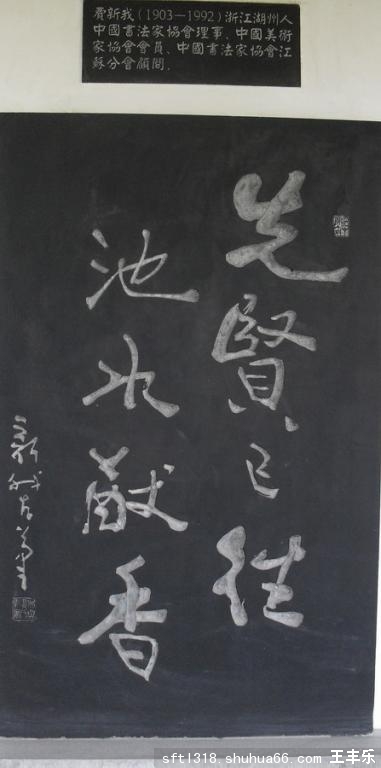 費新我(1903—1992)浙江湖州人
中國書法家協會理事、中國美術
家協會會員、中國書法家協會江
蘇分會顧問.
先賢已往
池水猷香
新我左筆
sftl318.shuhua66.com 王丰乐